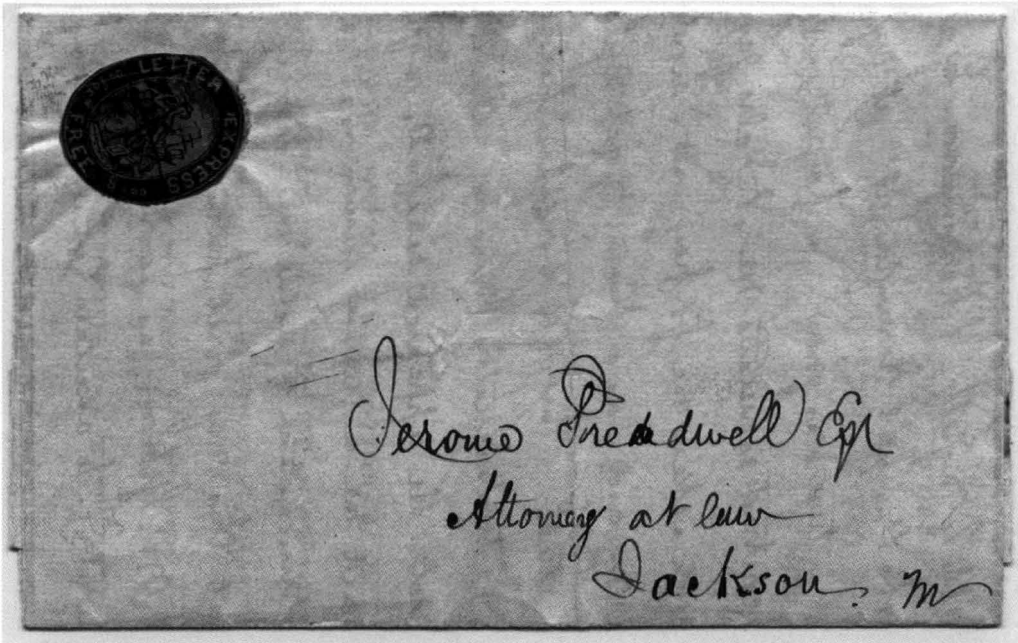 FREE LETTER EXPRESS
Jerome Treadwell Esqr
Attorney at law
Jackson. M